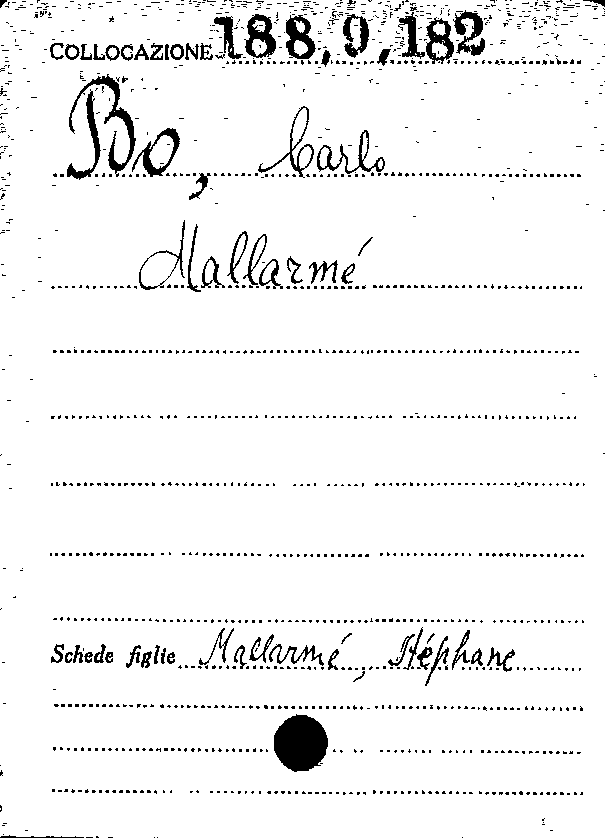 COLLOCAZIONE 188.9.182
Bo, Carlo
Mallarmé
Schede figlie Mallarmé, Stéphane